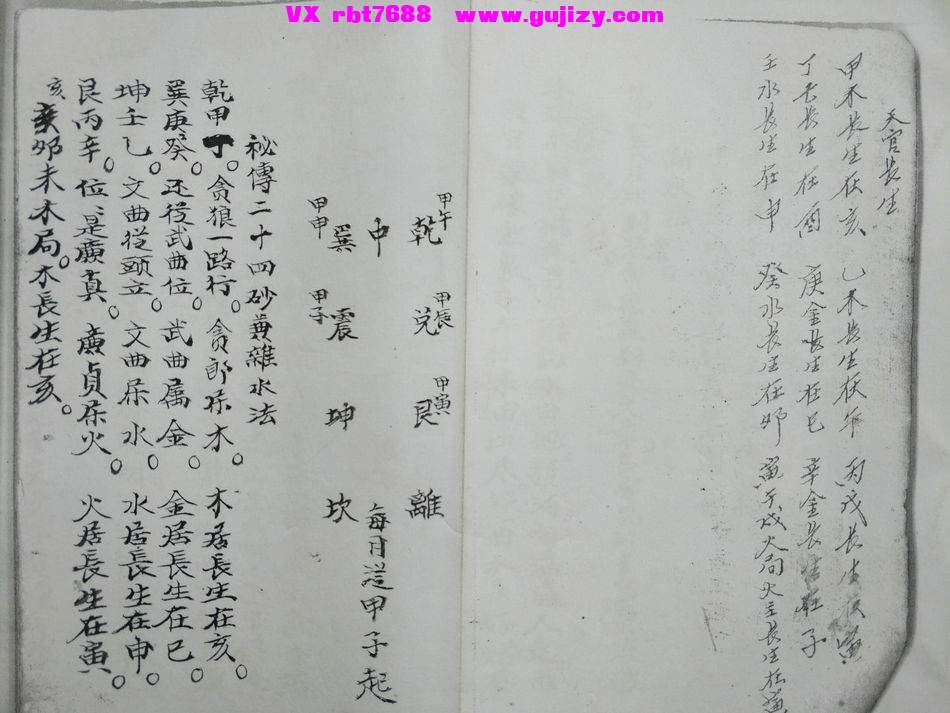 VX rbt7688 www.gujizy.com
天官長生
甲木長生在亥 乙木長生在午 丙戊長生在寅
丁壬長生在酉 庚金長生在巳 辛金長生在子
壬水長生在申 癸水長生在卯 寅午戌火局火主長生在寅
甲午 甲辰 甲寅
乾 兌 艮 離
中
甲申 甲子
巽 震 坤 坎
每日從甲子起
秘傳二十四砂黄離水法
乾甲丁。貪狼一路行。貪郎屬木。木居長生在亥。
巽庚癸。还從武曲位。武曲属金。金居長生在巳。
坤壬乙。文曲從頭立。文曲屬水。水居長生在申。
艮丙辛。位位是廉真。廉貞屬火。火居長生在寅。
亥
亥卯未木局。木長生在亥。